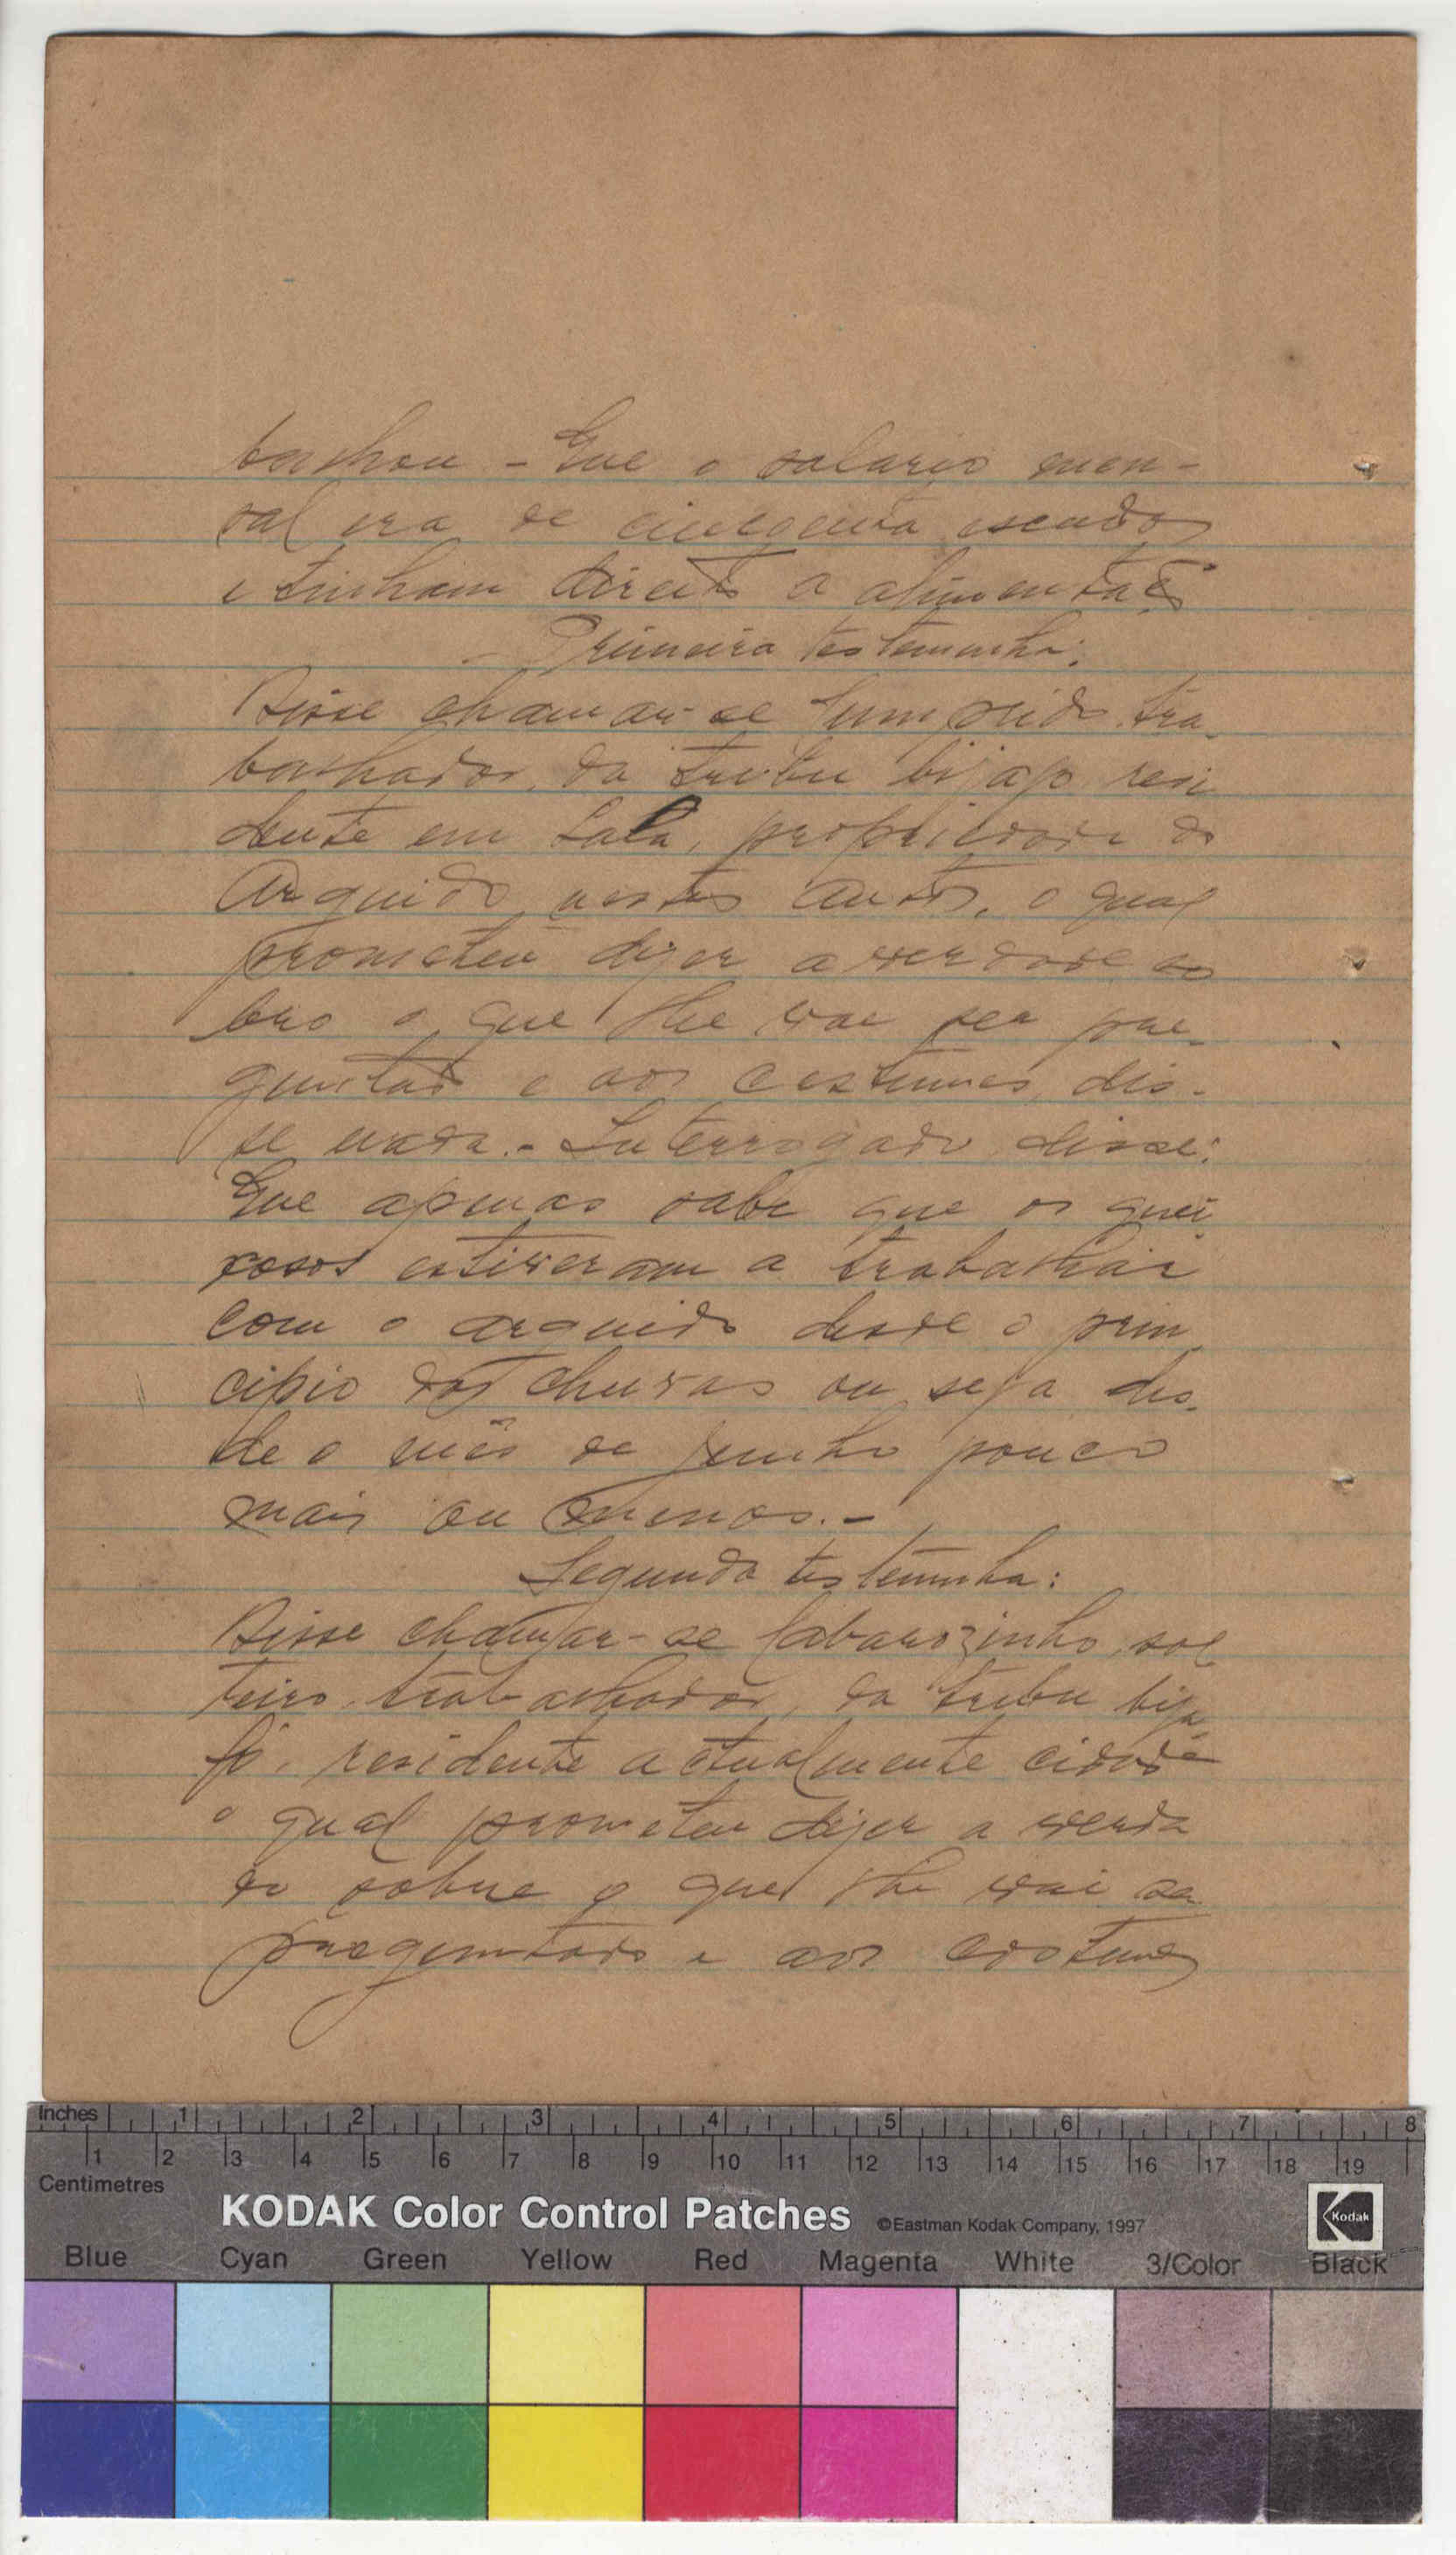 balhou - Que o salario men-
sal era de cincoenta escudos
e tinham direito a alimentação
- Primeira testemunha:
Disse chamar-se tra-
balhador, da tribu bijagó resi
dente em propriedade do
Arguido nestes autos, o qual
prometeu dizer a verdade so
bre o que lhe vae ser per-
guntado e aos costumes dis-
se nada. - Interrogado disse:
Que apenas sabe que os quei
xosos estiveram a trabalhar
com o arguido desde o prin
cipio das chuvas ou seja des-
de o mês de Junho pouco
mais ou menos. -
Segunda testemunha:
Disse chamar-se sol
teiro, trabalhador, da tribu bija
gó, residente actualmente cidade
o qual prometeu dizer a verda
de sobre o que lhe vai ser
preguntado e aos costumes
Inches 1 2 3 4 5 6 7 8
1 2 3 4 5 6 7 8 9 10 11 12 13 14 15 16 17 18 19
Centimetres
KODAK Color Control Patches ©Eastman Kodak Company, 1997 Kodak
Blue Cyan Green Yellow Red Magenta White 3/Color Black